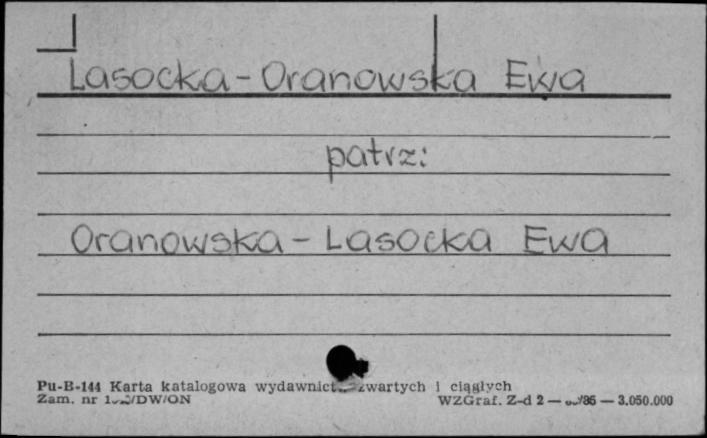 Lasocka-Oranowska Ewa
patrz:
Oranowska-Lasocka Ewa
Pu-B-144 Karta katalogowa wydawnictw zwartych i ciągłych
Zam. nr /DW/ON WZGraf. Z-d 2 — /86 — 3.050.000